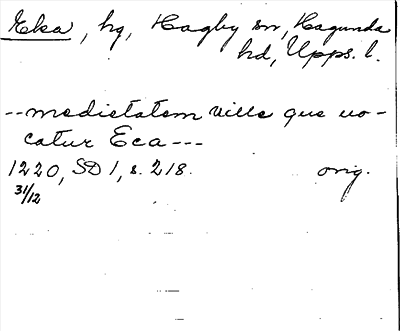 Eka, hg, Hagby sn, Hagunda
hd, Upps. l.
--medietatem ville que uo-
catur Eca---
1220, SD 1, s. 218. orig.
31/12